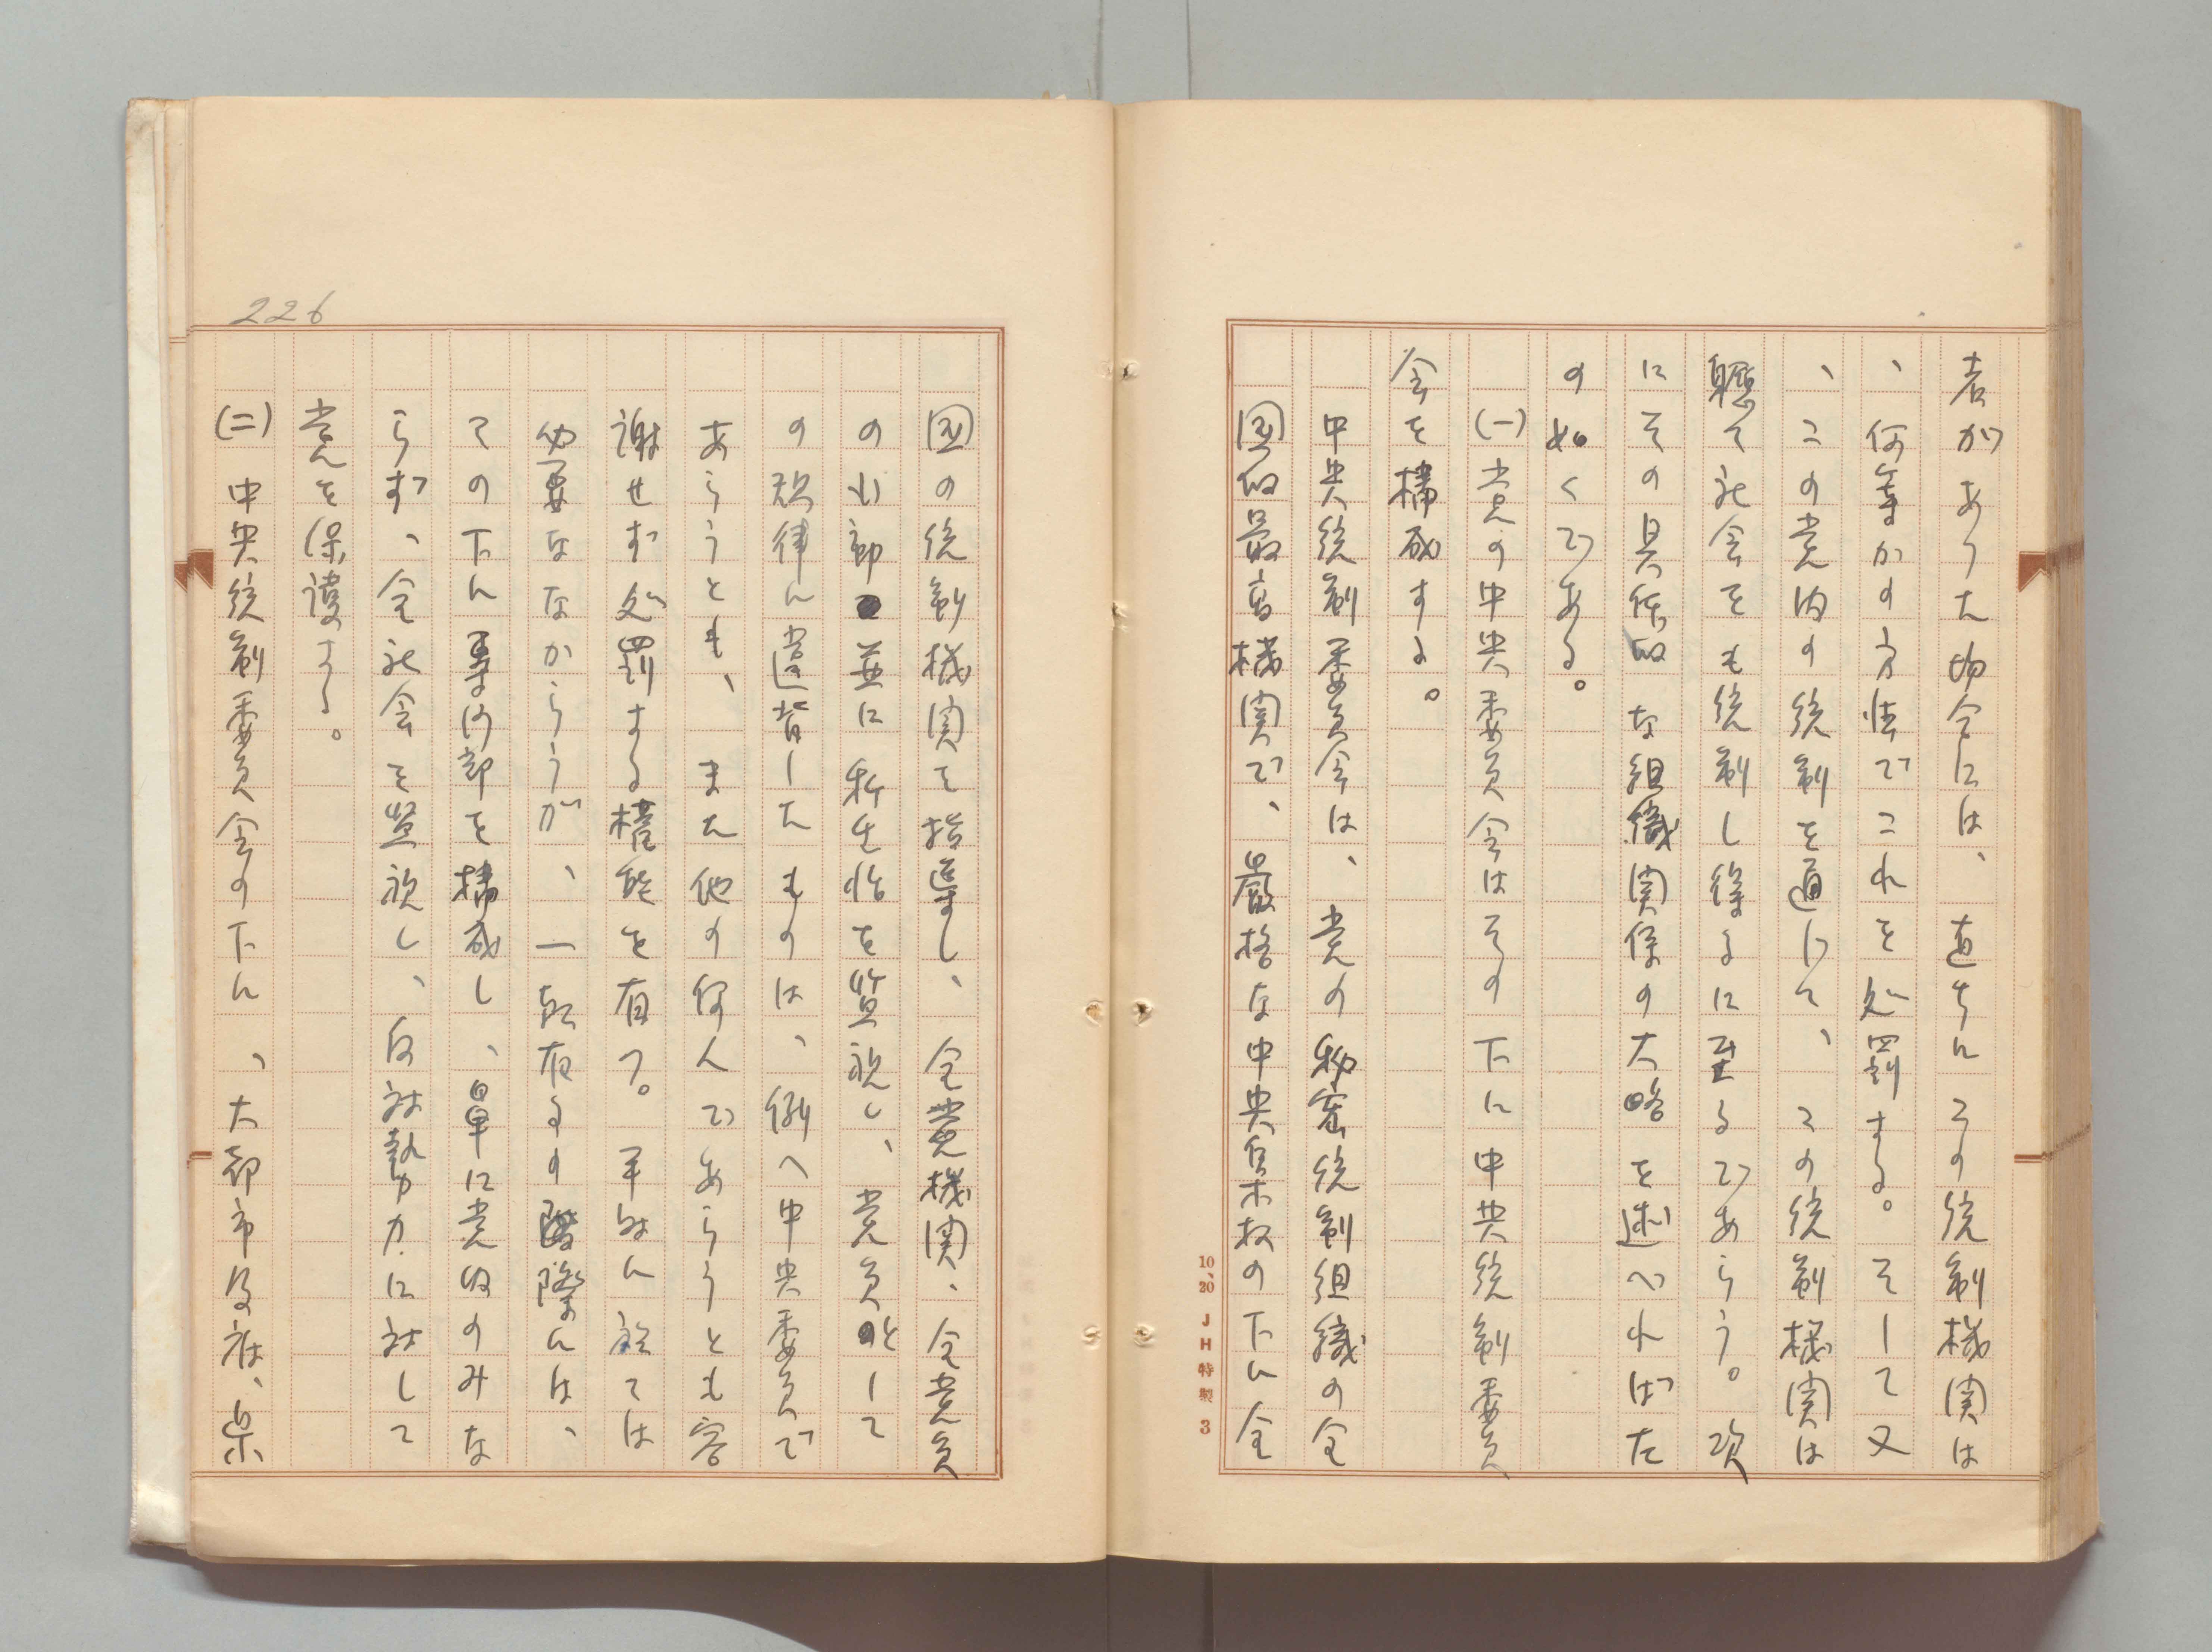 者があった場合には、直ちにこの統制機関は
、何等かの方法でこれを処罰する。そして又
、この党内の統制を通じて、この統制機関は
軈て社会をも統制し得るに至るであらう。次
にその具体的な組織関係の大略を述べればた
の如くである。
(一)党の中央委員会はその下に中央統制委員
会を構成する。
中央統制委員会は、党の秘密統制組織の全
国的最高機関で、厳格な中央集权の下に全
10、20 JH特製 3
226
国の統制機関を指導し、全党機関、全党員
の内部並に私生活を監視し、党員として
の規律に違背したものは、例へ中央委員で
あらうとも、また他の何人であらうとも容
謝せず処罰する権能を有つ。平時に於ては
必要なかからうが、一朝有るの際には、
その下に専門部を構成し、単に党内のみな
らず、全社会を監視し、反対勢力に対して
党を保護する。
(二)中央統制委員会の下に、大都市及府、県